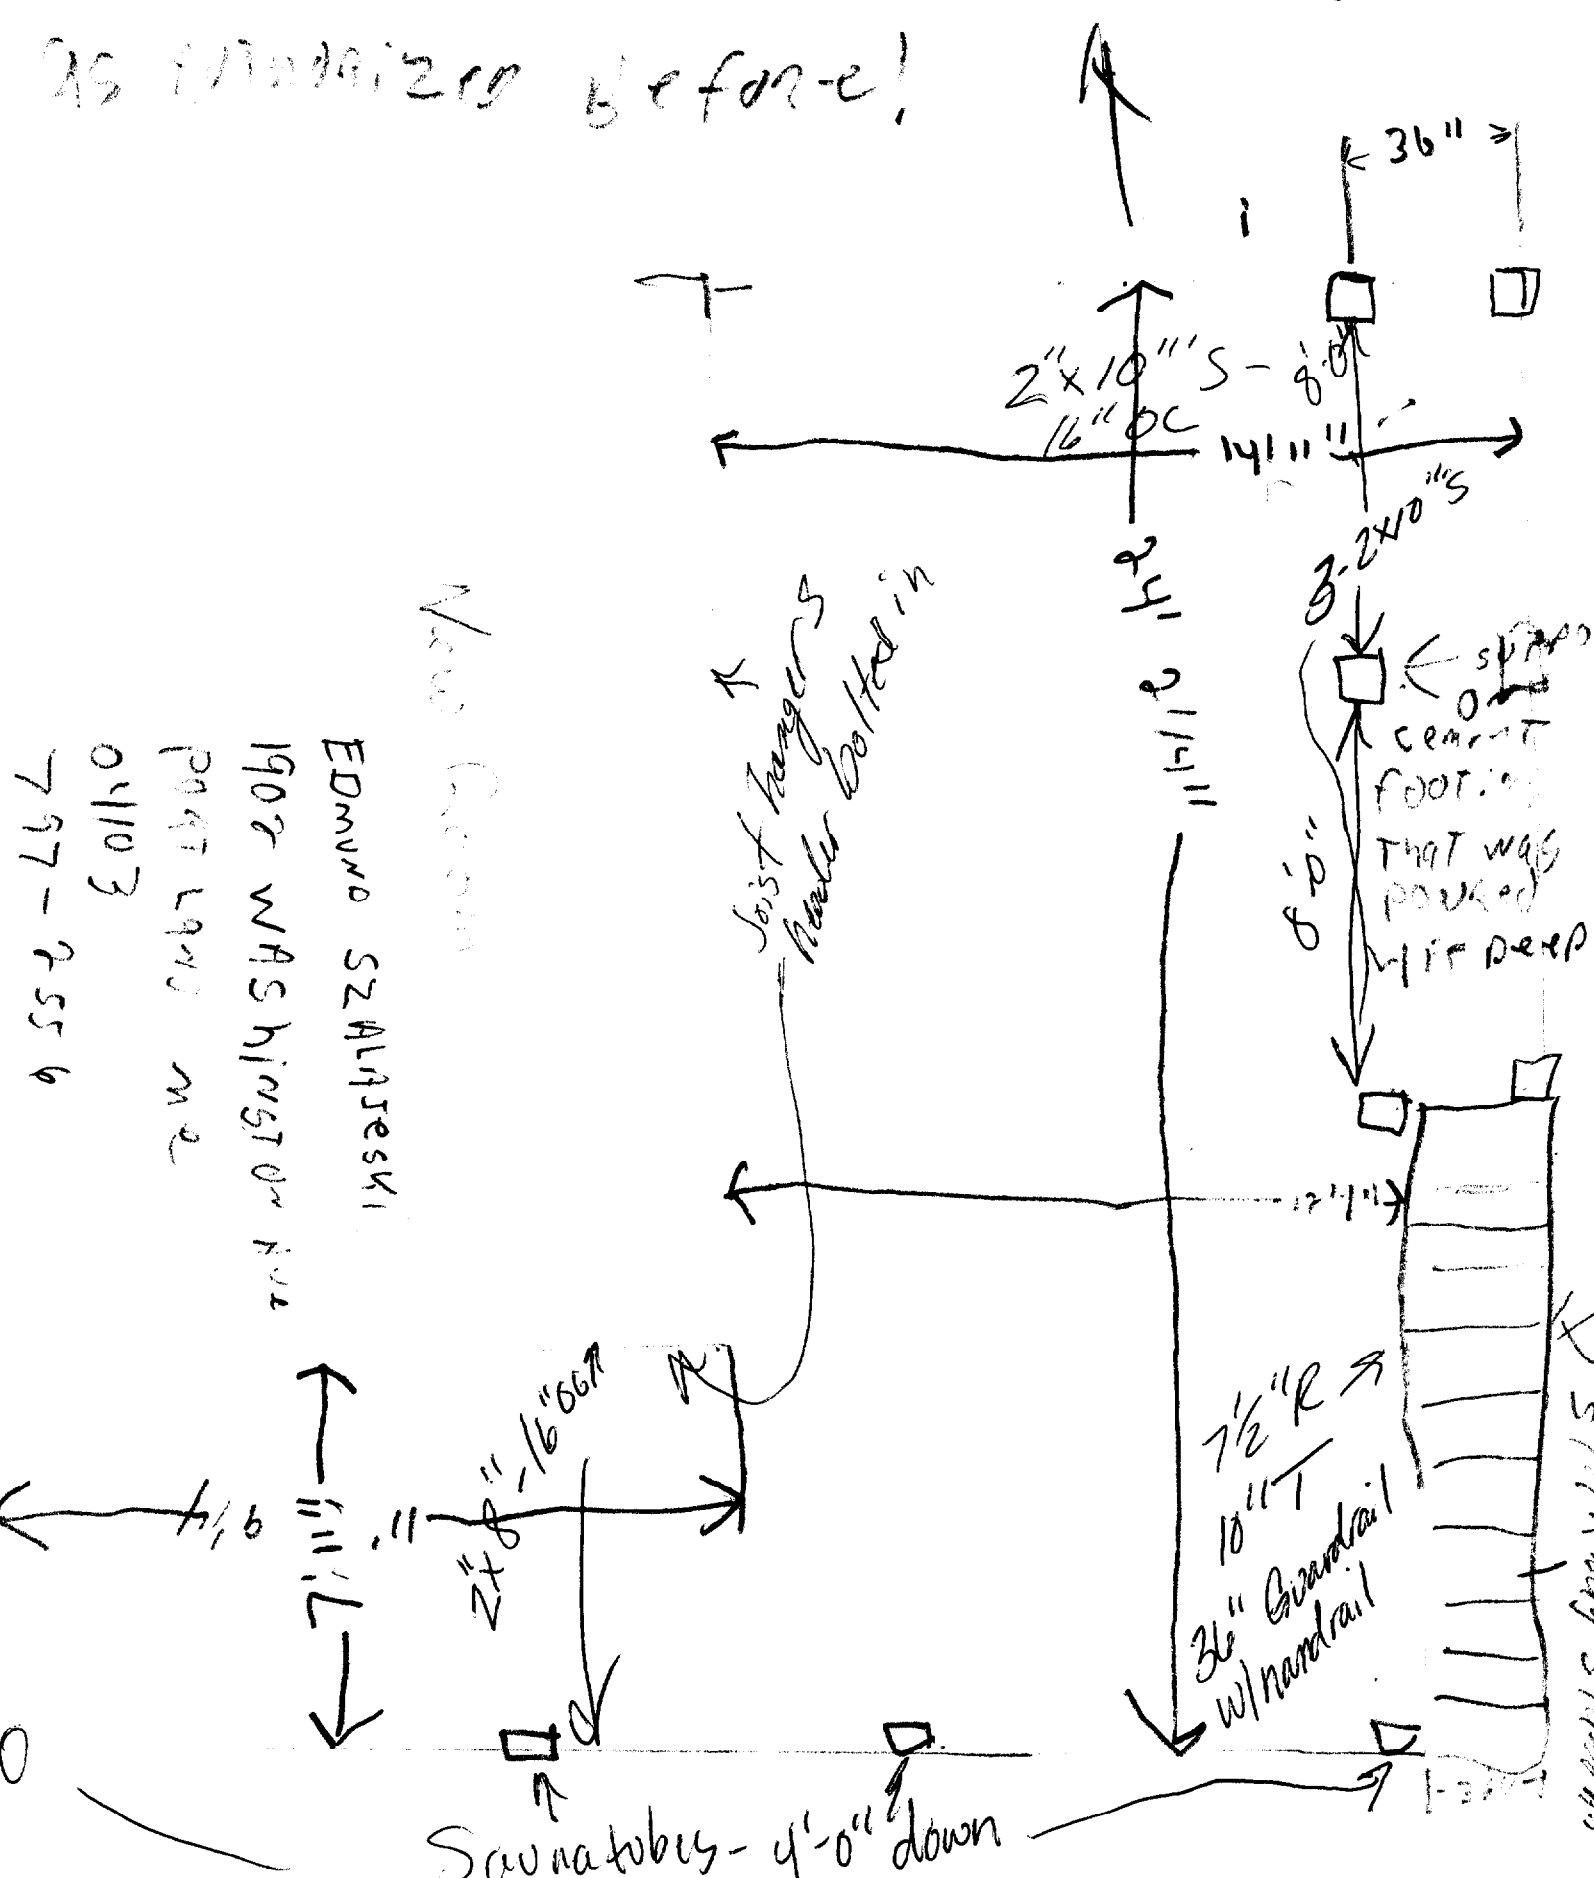 as before!
36"
2"x10"'s - 8'0"
16" OC
14' 11"
3-2x10"'s
24' 2 1/4"
Joist hangers
header bolted in
cement
footing
that was
poured
4 ft Deep
8'-0"
New
EDmund SZALAJESKI
1902 WAShingTon Ave
PORTLAND me
04103
797-2556
12'4"
7 1/2" R
10" T
36" Guardrail
w/handrail
2"x8"-16"OC
7' 11"
Saunatubes - 4'-0" down